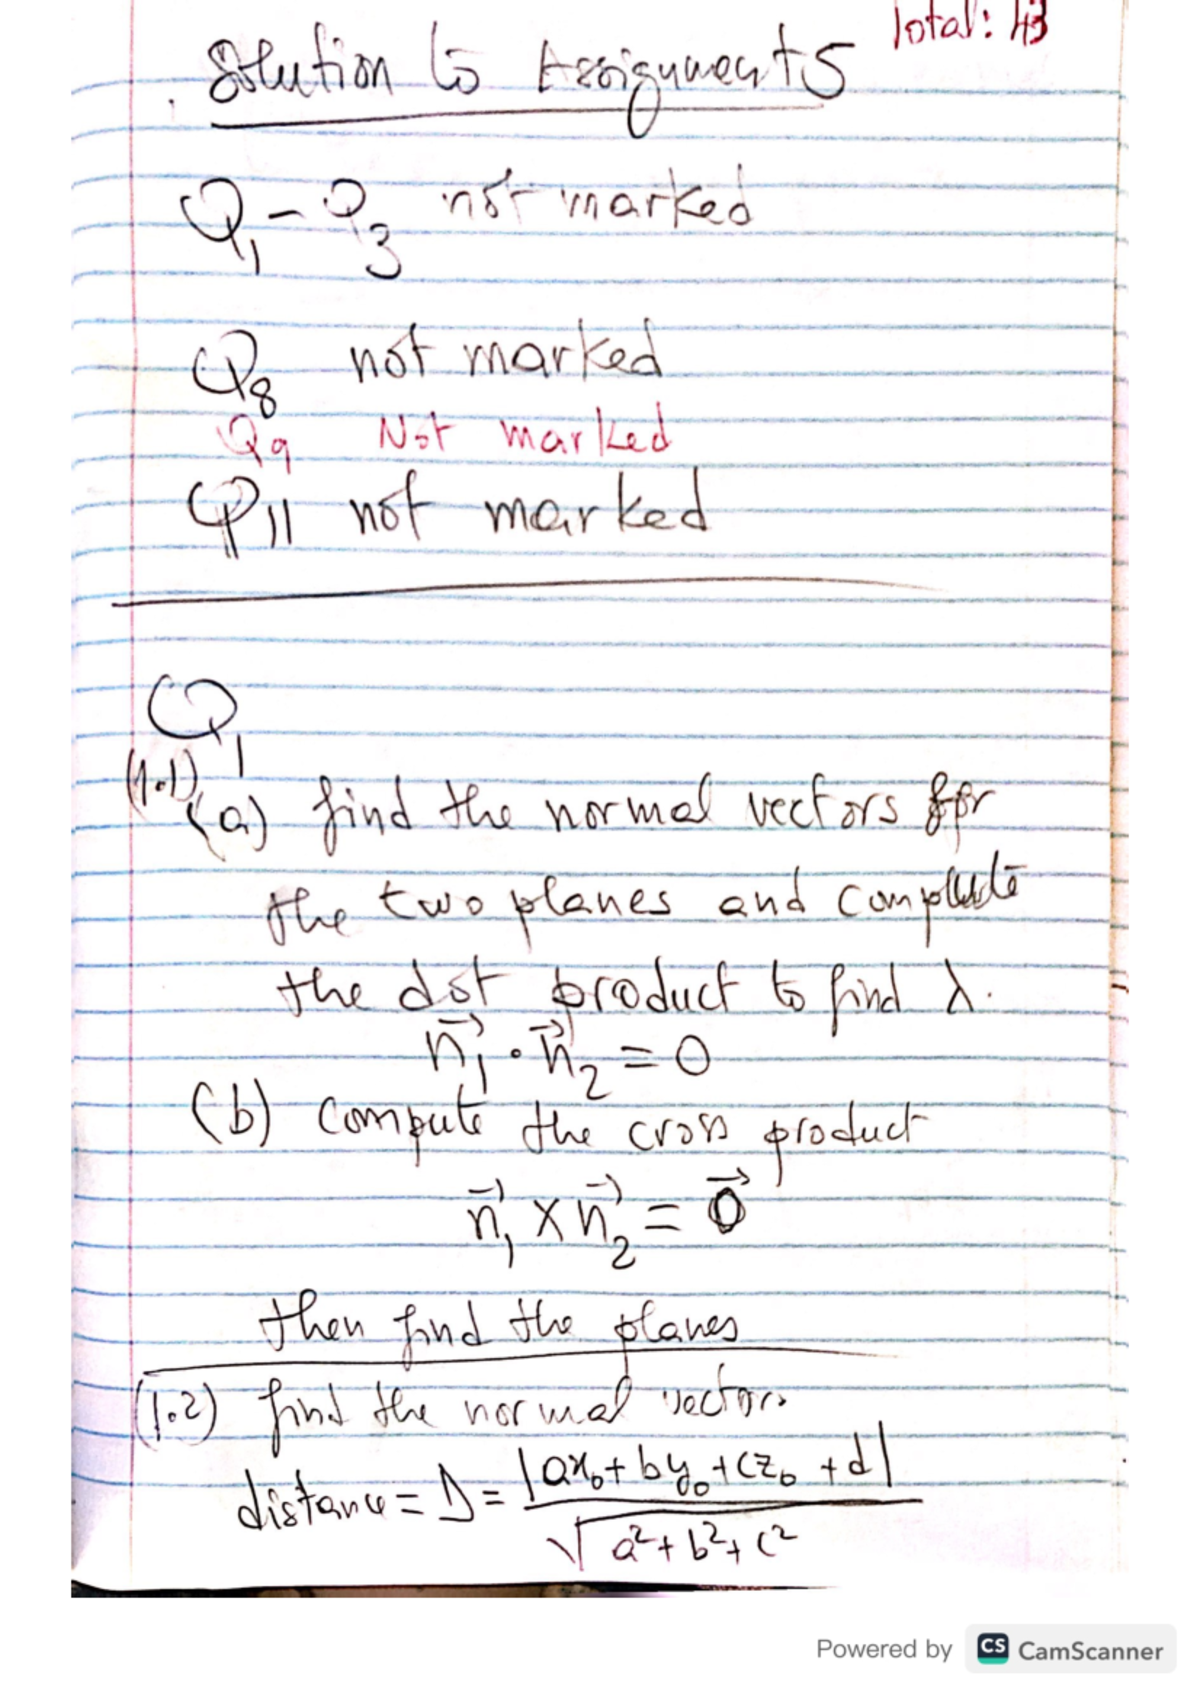 Total: 43
Solution to Assignment 5
Q1 - Q3 not marked
Q8 not marked
Q9 Not marked
Q11 not marked
Q1
(1.1)
(a) find the normal vectors for
the two planes and
the dot product to find λ.
n⃗1 · n⃗2 = 0
(b) compute the cross product
n⃗1 × n⃗2 = 0⃗
then find the planes
(1.2) find the normal vectors
distance = D = |ax0 + by0 + cz0 + d| / √(a² + b² + c²)
Powered by CS CamScanner